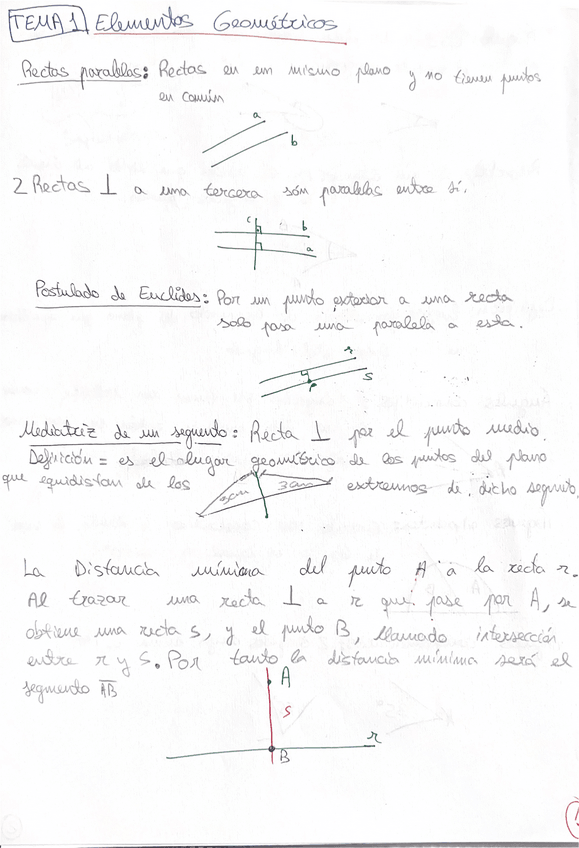 TEMA 1 Elementos Geométricos
Rectas paralelas: Rectas en un mismo plano y no tienen puntos
en común
a
b
2 Rectas ⊥ a una tercera són paralelas entre sí.
c
b
a
Postulado de Euclides: Por un punto exterior a una recta
solo pasa una paralela a esta.
r
s
P
Mediatriz de un segmento: Recta ⊥ por el punto medio.
Definición = es el lugar geométrico de los puntos del plano
que equidistan de los 3cm 3cm extremos de dicho segmento.
La Distancia mínima del punto A a la recta r.
Al trazar una recta ⊥ a r que pase por A, se
obtiene una recta s, y el punto B, llamado intersección
entre r y s. Por tanto la distancia mínima será el
segmento AB
A
s
r
B